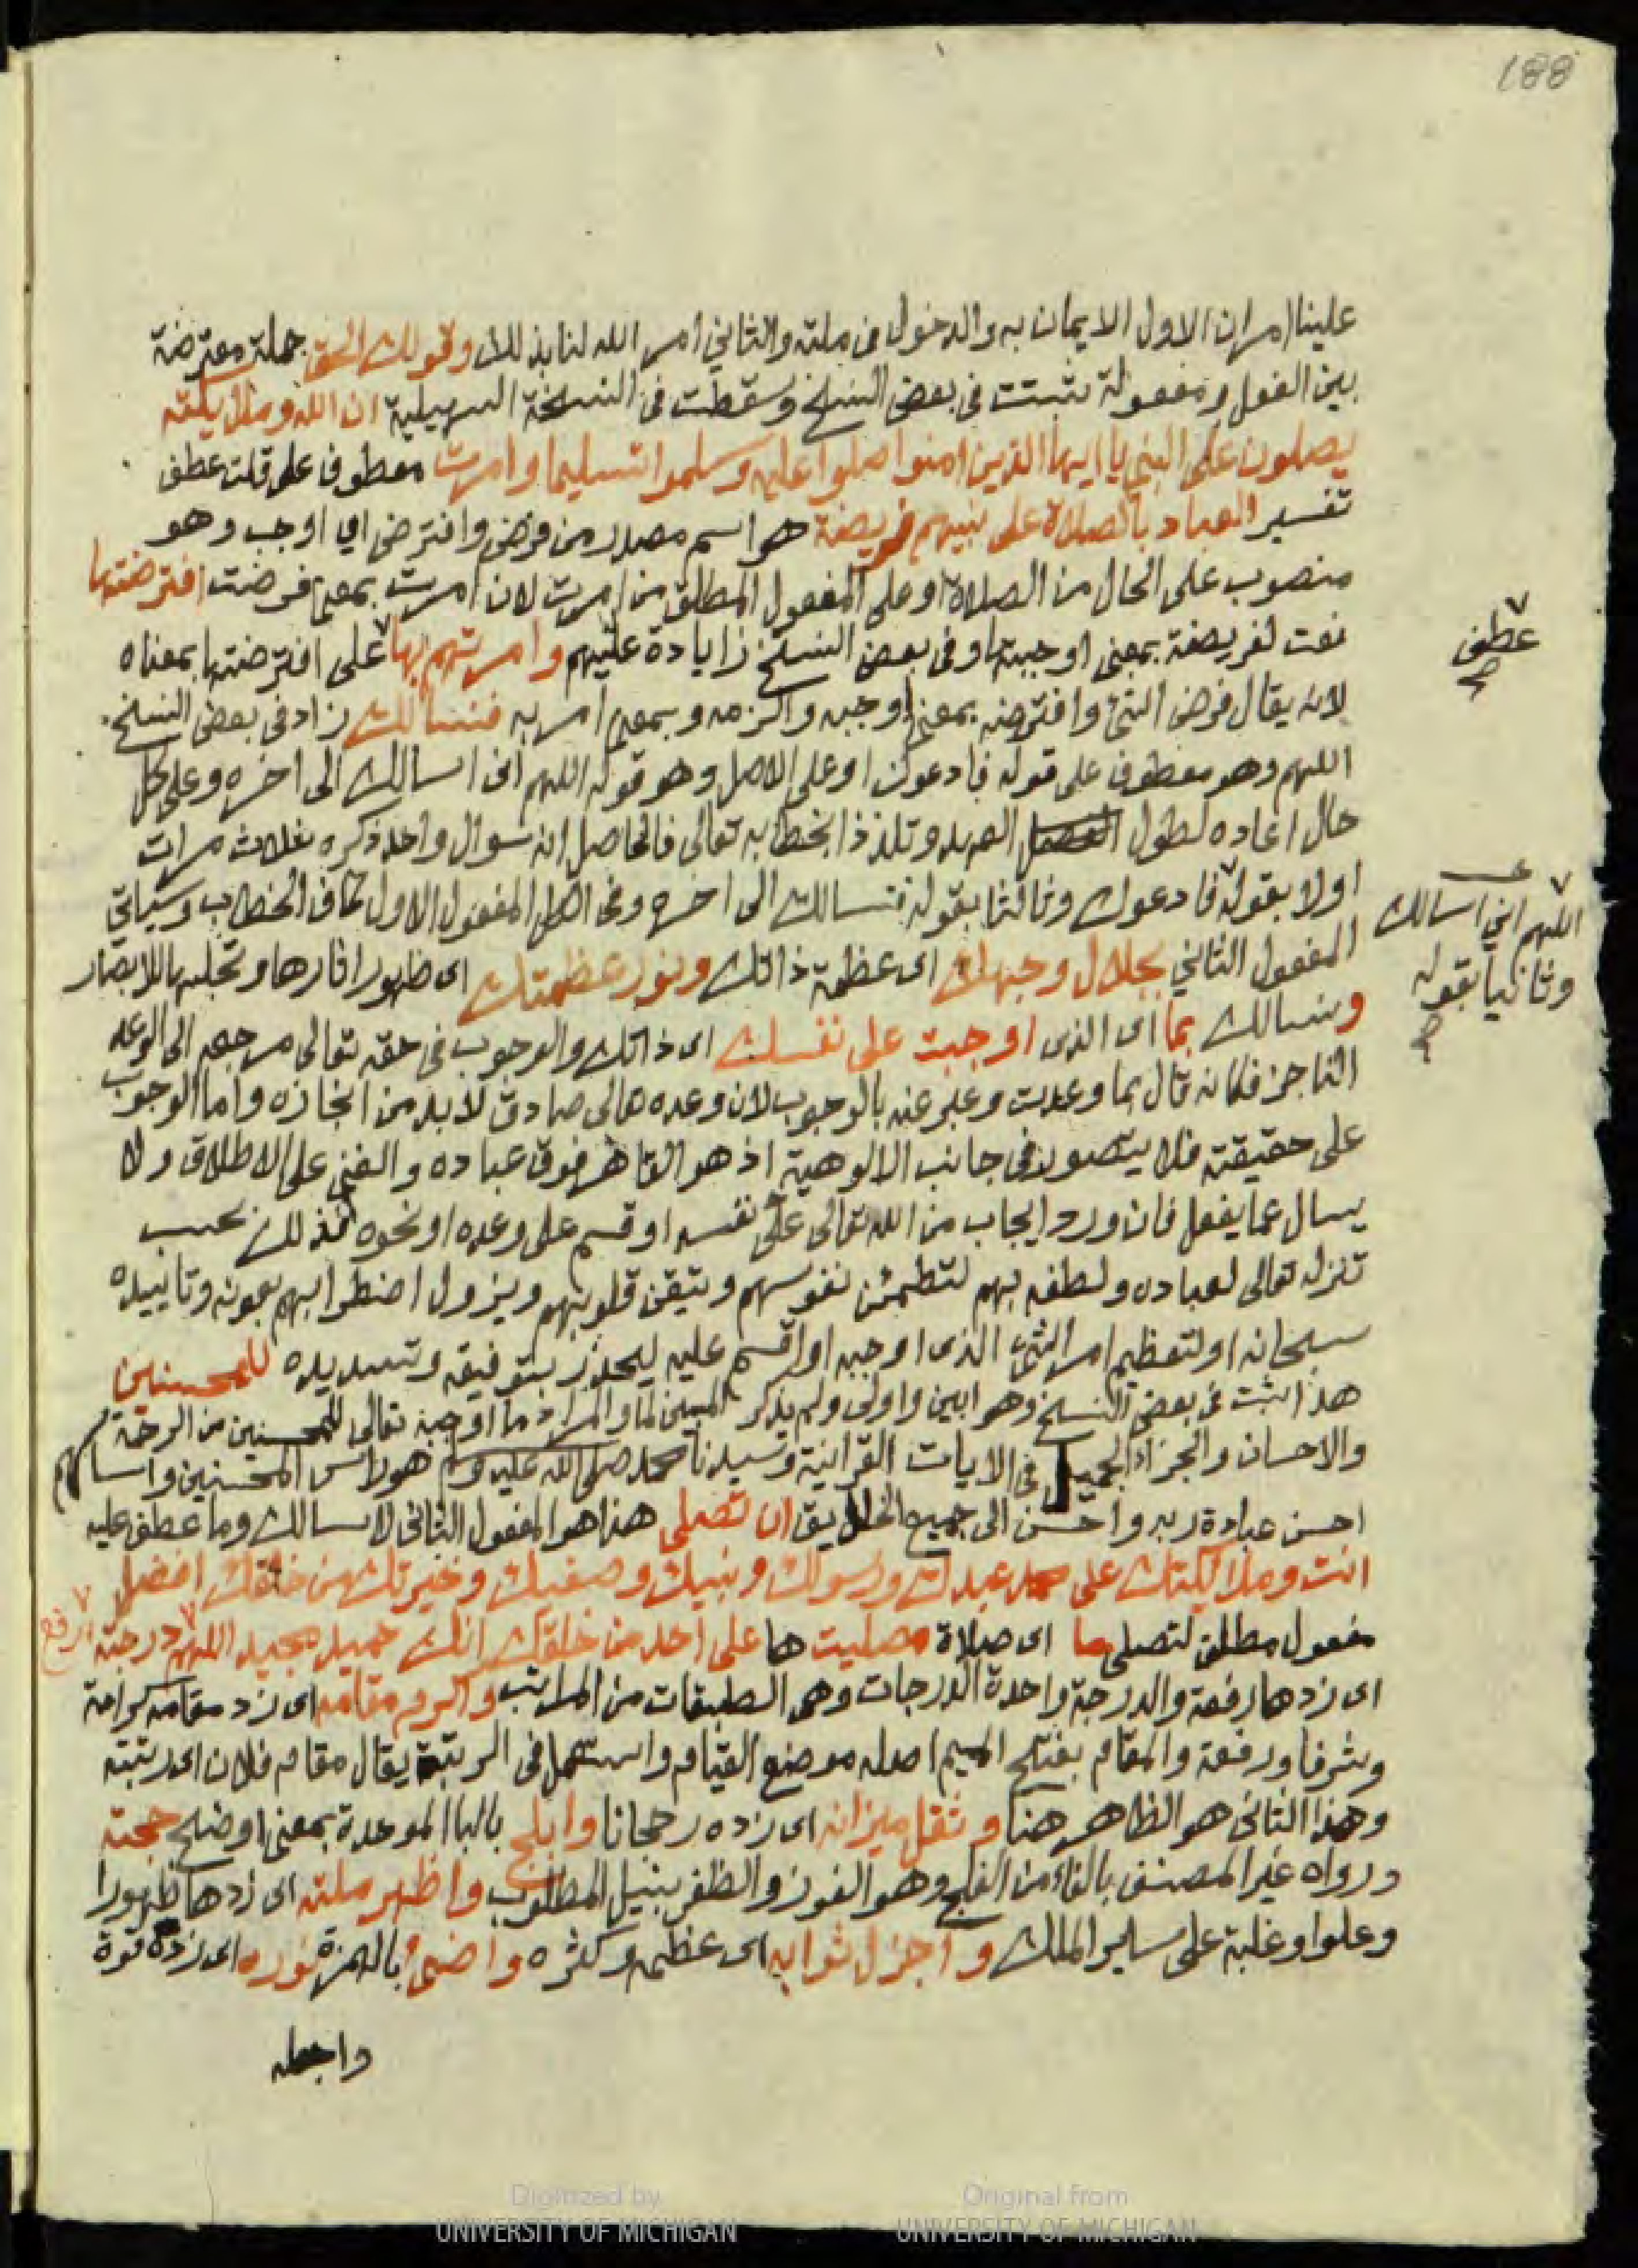 188
علينا امران الاول الايمان به والدخول في ملته والثاني امر الله لنا بذلك وقولك الحق جملة معترضة
بين الفعل ومفعوله ثبتت في بعض النسخ وسقطت في النسخة السهيلية ان الله وملايكته
يصلون على النبي يا ايها الذين امنوا صلوا عليه وسلموا تسليما وامرت معطوف على قلت عطف
تفسير العباد بالصلاة على نبيهم فريضة هو اسم مصدر من فرض وافترض اي اوجب وهو
منصوب على الحال من الصلاة او على المفعول المطلق من امرت لان امرت بمعنى فرضت افترضتها
نعت لفريضة بمعنى اوجبتها وفي بعض النسخ زيادة عليهم وامرتهم بها على افترضتها بمعناه
عطف
صح
لانه يقال فرض الشئ وافترضه بمعنى اوجبه والزمه وبمعنى امر به فنسالك زاد في بعض النسخ
اللهم وهو معطوف على قوله فادعوك او على الاصل وهو قوله اللهم اني اسالك الى اخره وعلى كل
حال اعاده لطول العهد وتلذذا بخطابه تعالى فالحاصل انه سوال واحد ذكره ثلاث مرات
اولا بقوله فادعوك وثالثا بقوله فنسالك الى اخره وفي الكل المفعول الاول كاف الخطاب وسياتي
اللهم اني اسالك
وثانيا بقوله
صح
المفعول الثاني بجلال وجهك اى عظمة ذاتك ونور عظمتك اى ظهور اثارها وتجليها للابصار
ونسالك بما اى الذى اوجبت على نفسك اى ذاتك والوجوب في حقه تعالى مرجعه الى الوعد
الناجز فكانه قال بما وعدت وعبر عنه بالوجوب لان وعده تعالى صادق لا بد من انجازه واما الوجوب
على حقيقته فلا يتصور في جانب الالوهية اذ هو القاهر فوق عباده والغني على الاطلاق ولا
يسال عما يفعل فان ورد ايجاب من الله تعالى على نفسه او قسم على وعده او نحوه فذلك بحسب
تنزله تعالى لعباده ولطفه بهم لتطمئن نفوسهم وتيقن قلوبهم ويزول اضطرابهم بعونه وتاييده
سبحانه او لتعظيم امر الشئ الذى اوجبه او اقسم عليه ليحذر بتوفيقه وتسديده للمحسنين
هذا ثبت في بعض النسخ وهو ابين واولى ولم يذكر المبين لما والمراد ما اوجبه تعالى للمحسنين من الرحمة
والاحسان والجزاء الجميل في الايات القرانية وسيدنا محمد صلى الله عليه وسلم هو راس المحسنين واساسهم
احسن عبادة ربه واحسن الى جميع الخلايق ان تصلى هذا هو المفعول الثاني لاسالك وما عطف عليه
انت وملائكتك على محمد عبدك ورسولك ونبيك وصفيك وخيرتك من خلقك افضل
مفعول مطلق لتصلى ما اى صلاة صليتها على احد من خلقك انك حميد مجيد اللهم ارفع درجته
اى زدها رفعة والدرجة واحدة الدرجات وهى الطبقات من المراتب واكرم مقامه اى زد مقامه كرامة
وشرفا ورفعة والمقام بفتح الميم اصله موضع القيام واستعمل في الرتبة يقال مقام فلان اى رتبته
وهذا الثاني هو الظاهر هنا وثقل ميزانه اى زده رجحانا وابلج بالبا الموحدة بمعنى اوضح حجته
ورواه غير المصنف بالفاء من الفلج وهو الفوز والظفر بنيل المطلوب واظهر ملته اى زدها ظهورا
وعلوا وغلبة على ساير الملل واجزل ثوابه اى عظمه وكثره واضئ بالهمزة نوره اى زده قوة
واجعله
Digitized by
UNIVERSITY OF MICHIGAN
Original from
UNIVERSITY OF MICHIGAN